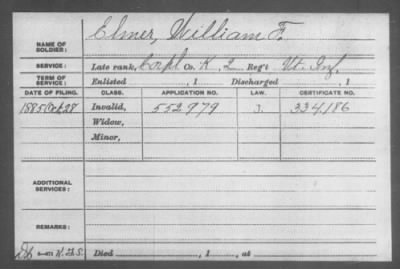 Elmer, William F.
NAME OF SOLDIER:
SERVICE: Late rank, Corpl Co. K, 2 Reg't Vt. Inf.
TERM OF SERVICE: Enlisted , 1 Discharged , 1
DATE OF FILING. CLASS. APPLICATION NO. LAW. CERTIFICATE NO.
1885 28 Invalid, 552979 334,186
Widow,
Minor,
ADDITIONAL SERVICES:
REMARKS:
Died , 1 , at